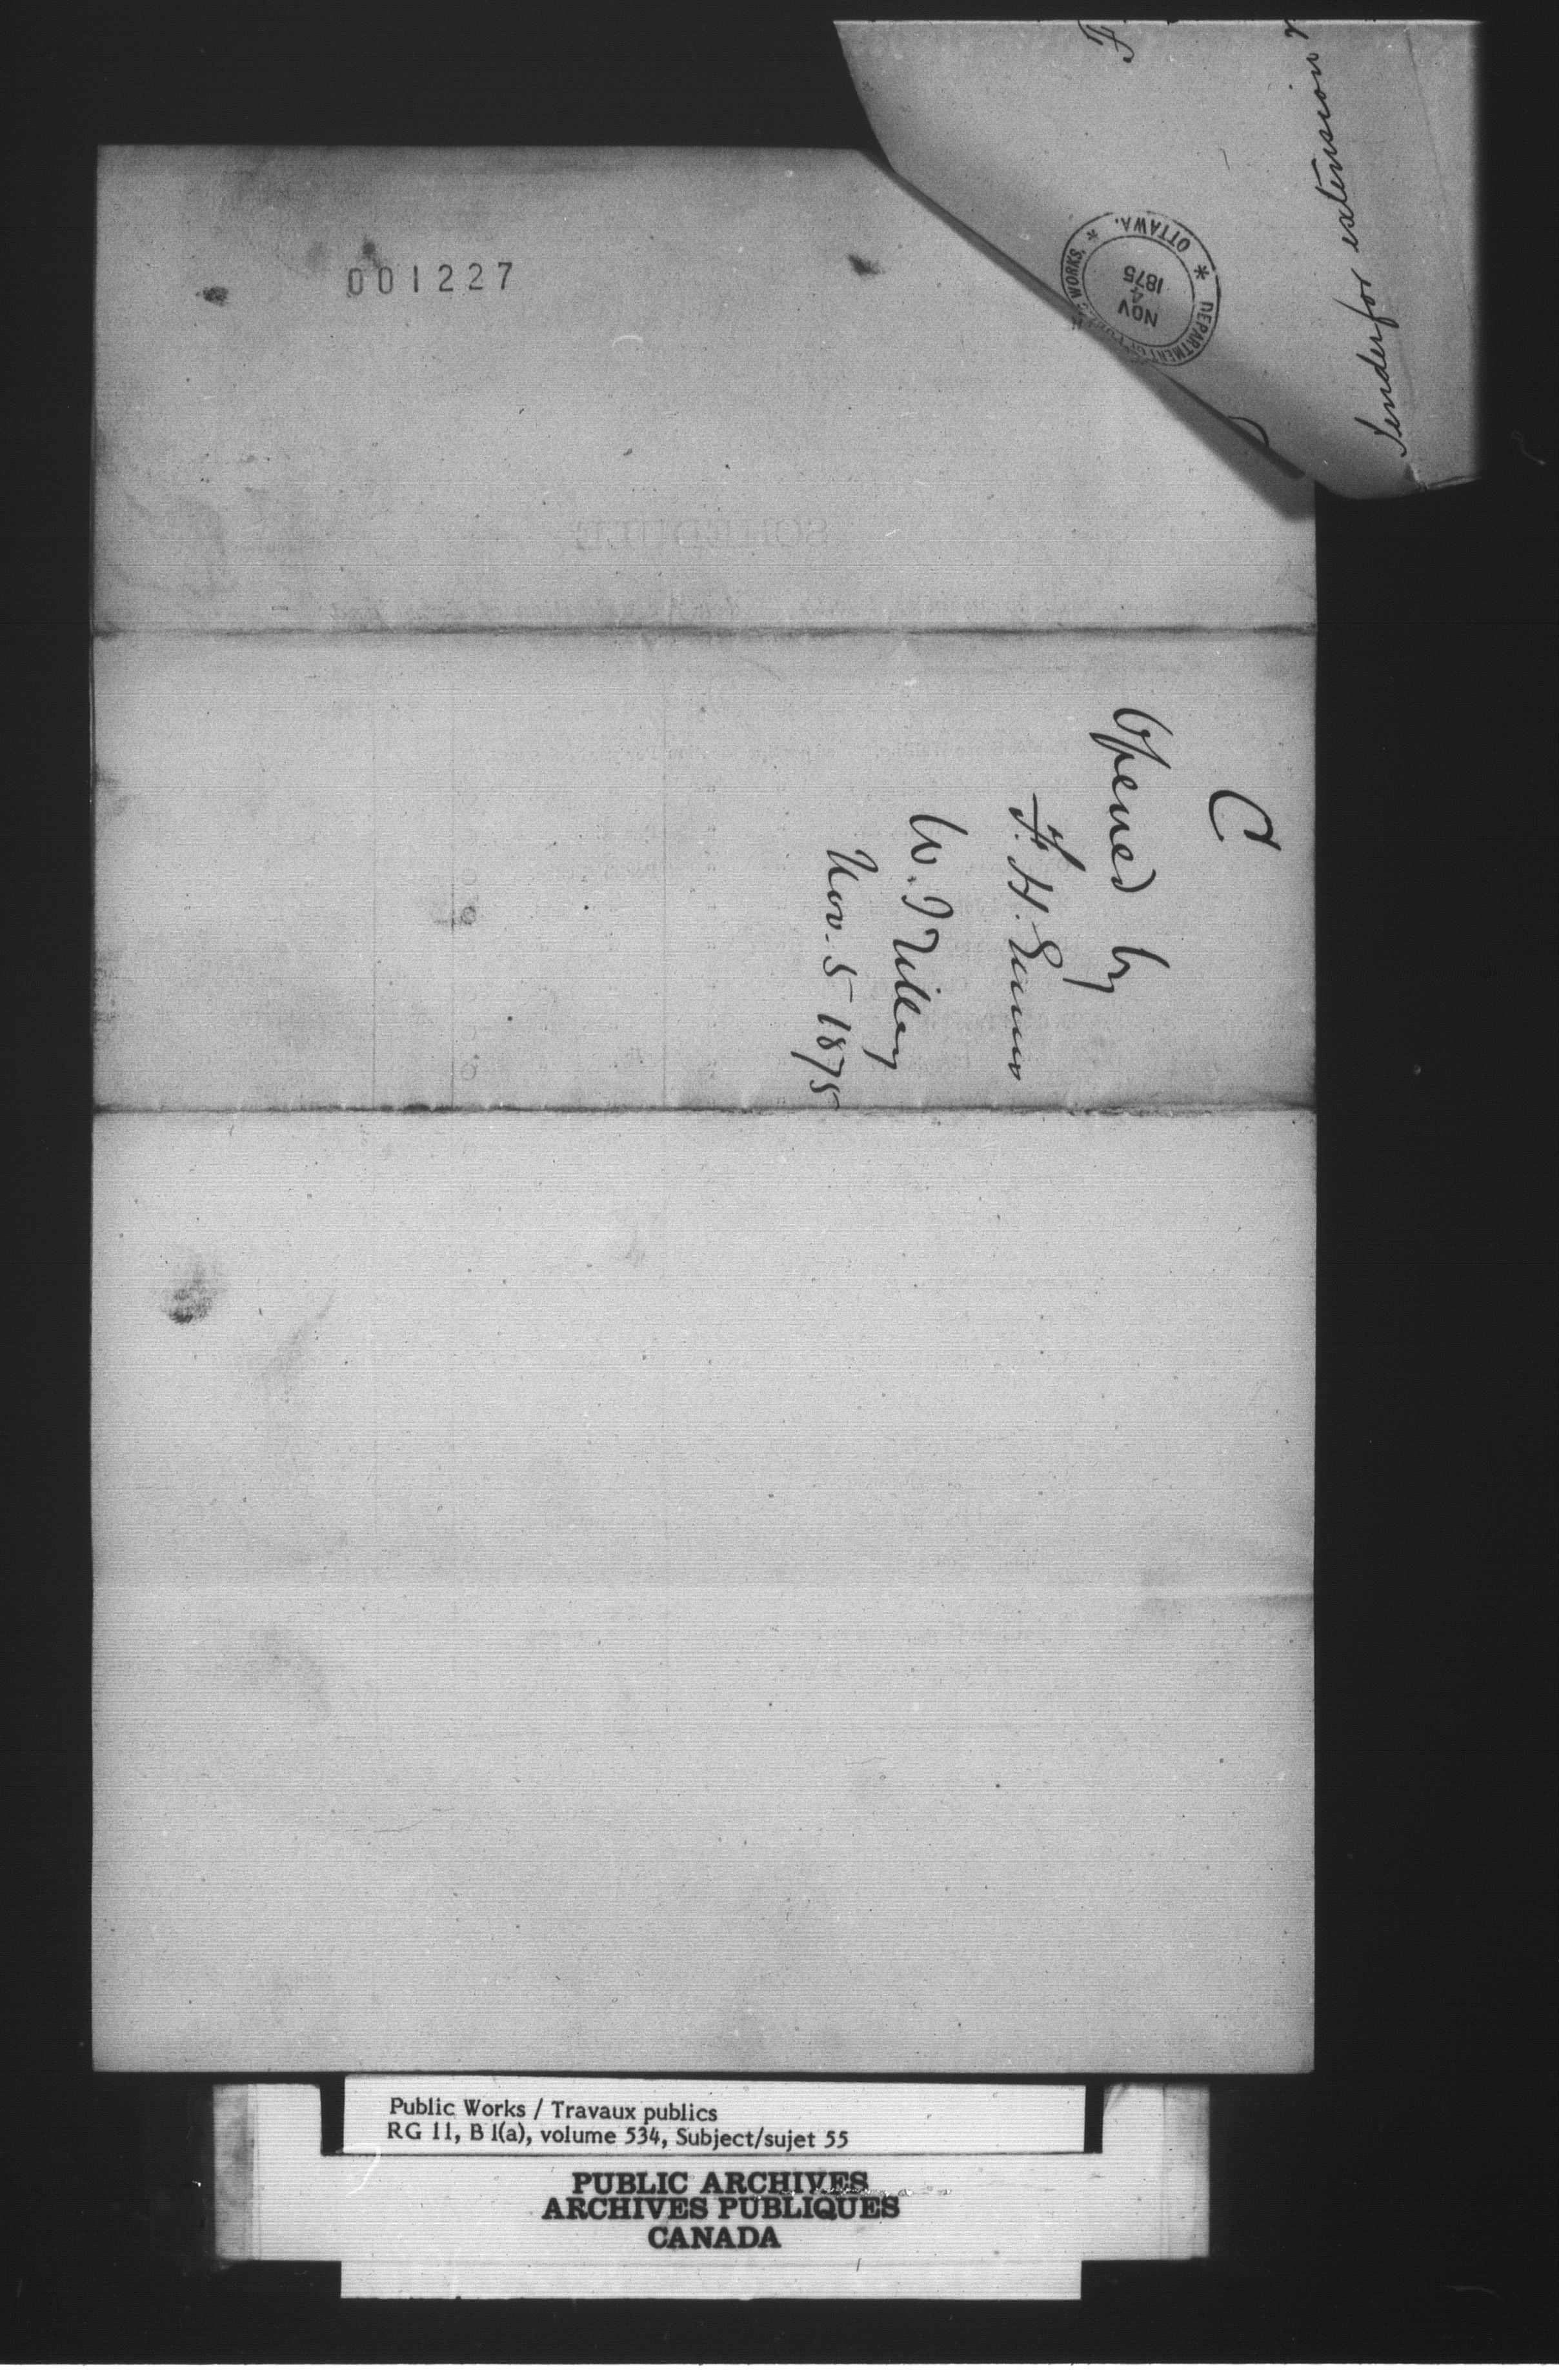 F
Tender for extension
DEPARTMENT OF PUBLIC WORKS.
* OTTAWA. *
NOV
4
1875
001227
SCHEDULE
C
Opened by
F. H. Ennis
W. J. Tilley
Nov. 5 1875
Public Works / Travaux publics
RG 11, B 1(a), volume 534, Subject/sujet 55
PUBLIC ARCHIVES
ARCHIVES PUBLIQUES
CANADA